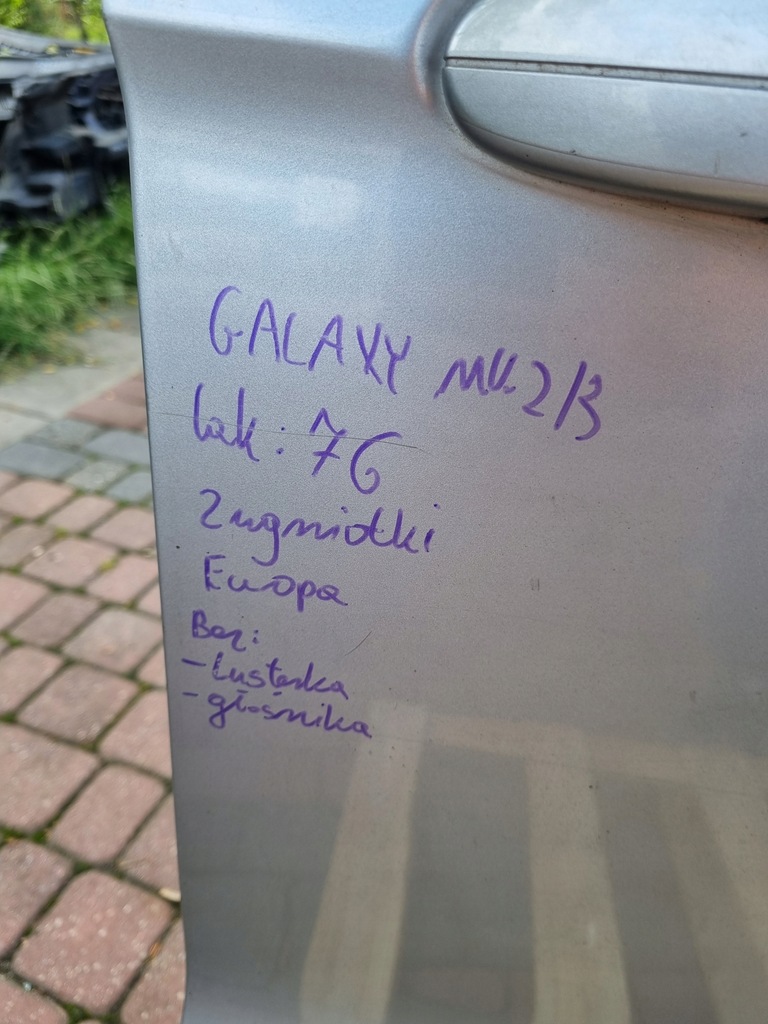 GALAXY MK.2/3
lak: 7G
2 wgniotki
Europa
Bez:
- lusterka
- głośnika